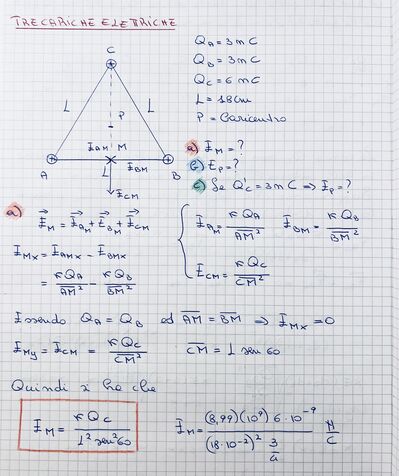 TRE CARICHE ELETTRICHE
Q_A = 3 nC
Q_B = 3 nC
Q_C = 6 nC
L = 18 cm
P = Baricentro
C
L
L
P
E_AM
M
E_BM
A
L
B
E_CM
a) E_M = ?
b) E_P = ?
c) Se Q'_C = 3 nC ⇒ E_P = ?
a) E⃗_M = E⃗_AM + E⃗_BM + E⃗_CM
E_Mx = E_AMx - E_BMx
= K Q_A / AM² - K Q_B / BM²
E_AM = K Q_A / AM² E_BM = K Q_B / BM²
E_CM = K Q_C / CM²
Essendo Q_A = Q_B ed AM = BM ⇒ E_Mx = 0
E_My = E_CM = K Q_C / CM² CM = L sen 60
Quindi si ha che
E_M = K Q_C / L² sen² 60 E_M = (8,99)(10⁹) 6·10⁻⁹ / (18·10⁻²)² 3/4 N/C